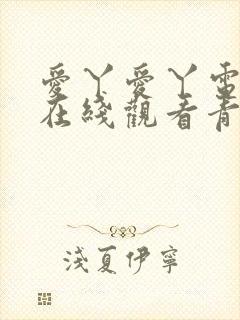 愛丫愛丫電
在綫觀看青
淺夏伊寧